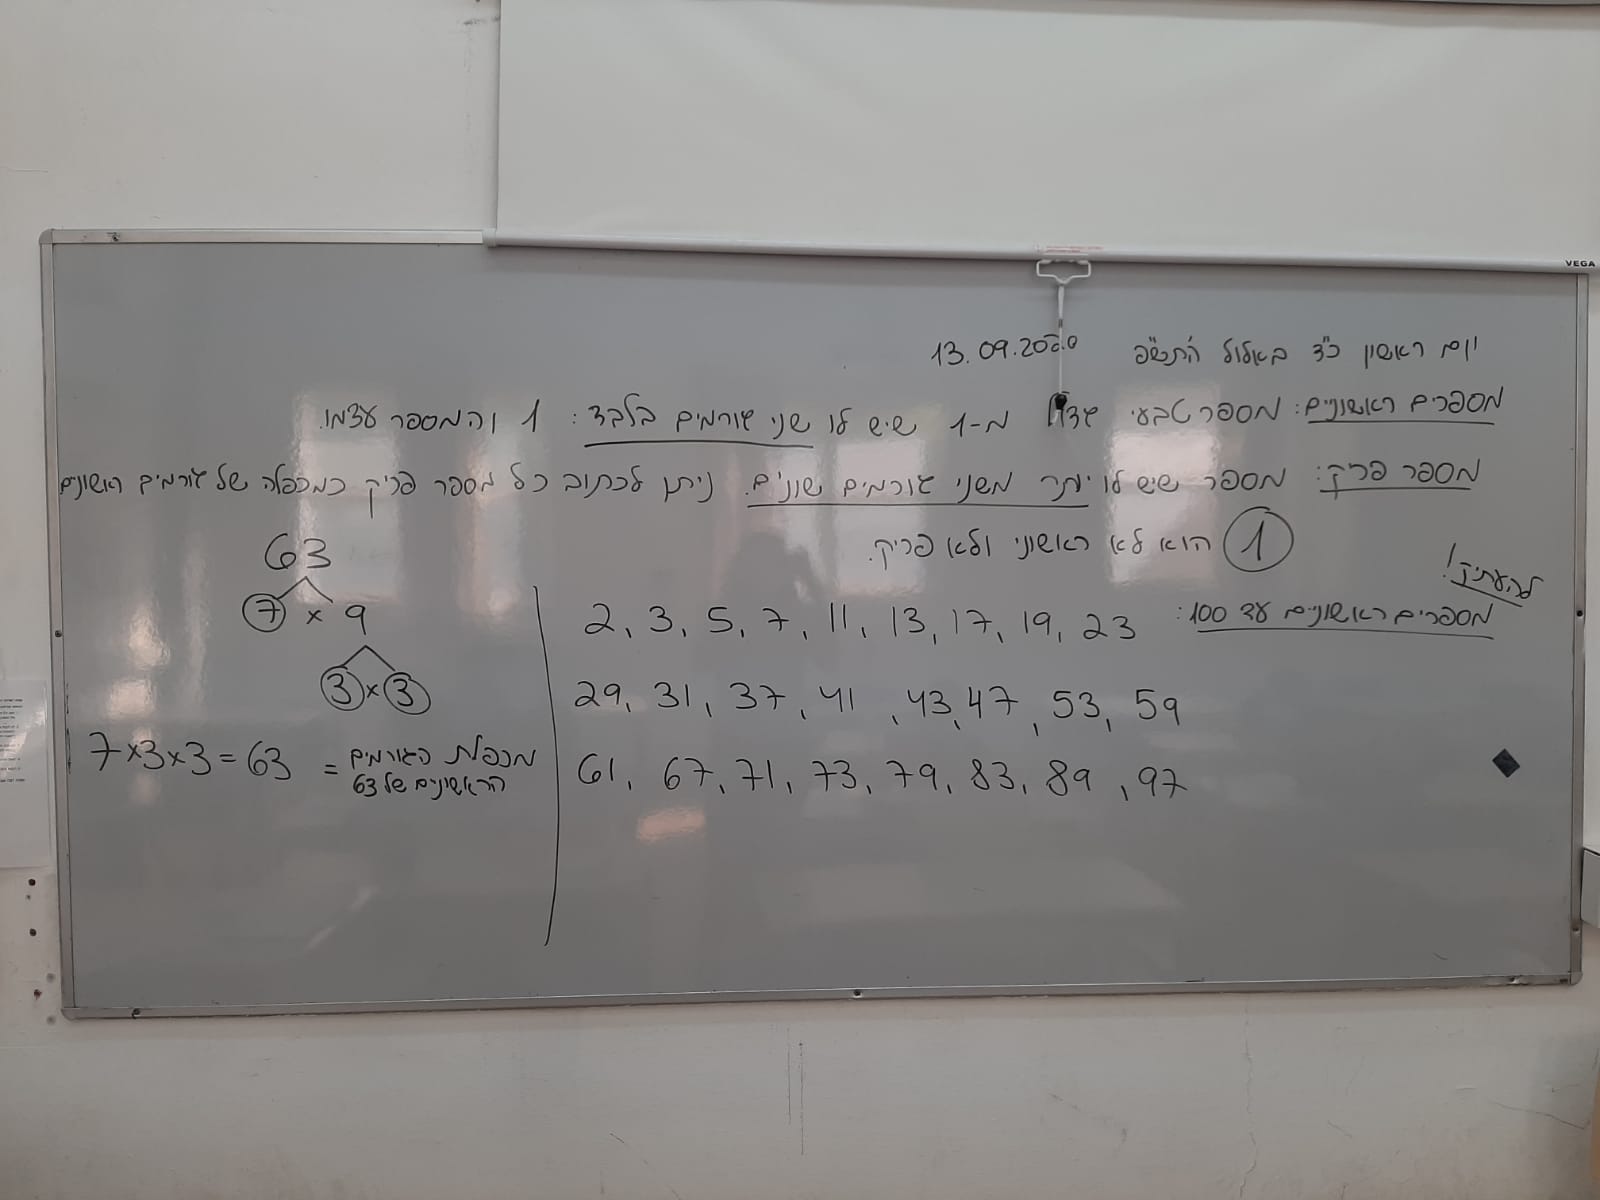 VEGA
יום ראשון כ"ד באלול ה'תש"פ 13.09.2020
מספרים ראשוניים: מספר טבעי גדול מ-1 שיש לו שני גורמים בלבד: 1 והמספר עצמו.
מספר פריק: מספר שיש לו יותר משני גורמים שונים. ניתן לכתוב כל מספר פריק כמכפלה של גורמים ראשונים
1 הוא לא ראשוני ולא פריק.
להעתיק!
מספרים ראשוניים עד 100:
2, 3, 5, 7, 11, 13, 17, 19, 23
29, 31, 37, 41, 43, 47, 53, 59
61, 67, 71, 73, 79, 83, 89, 97
63
7 × 9
3 × 3
7×3×3 = 63 = מכפלת הגורמים
הראשוניים של 63